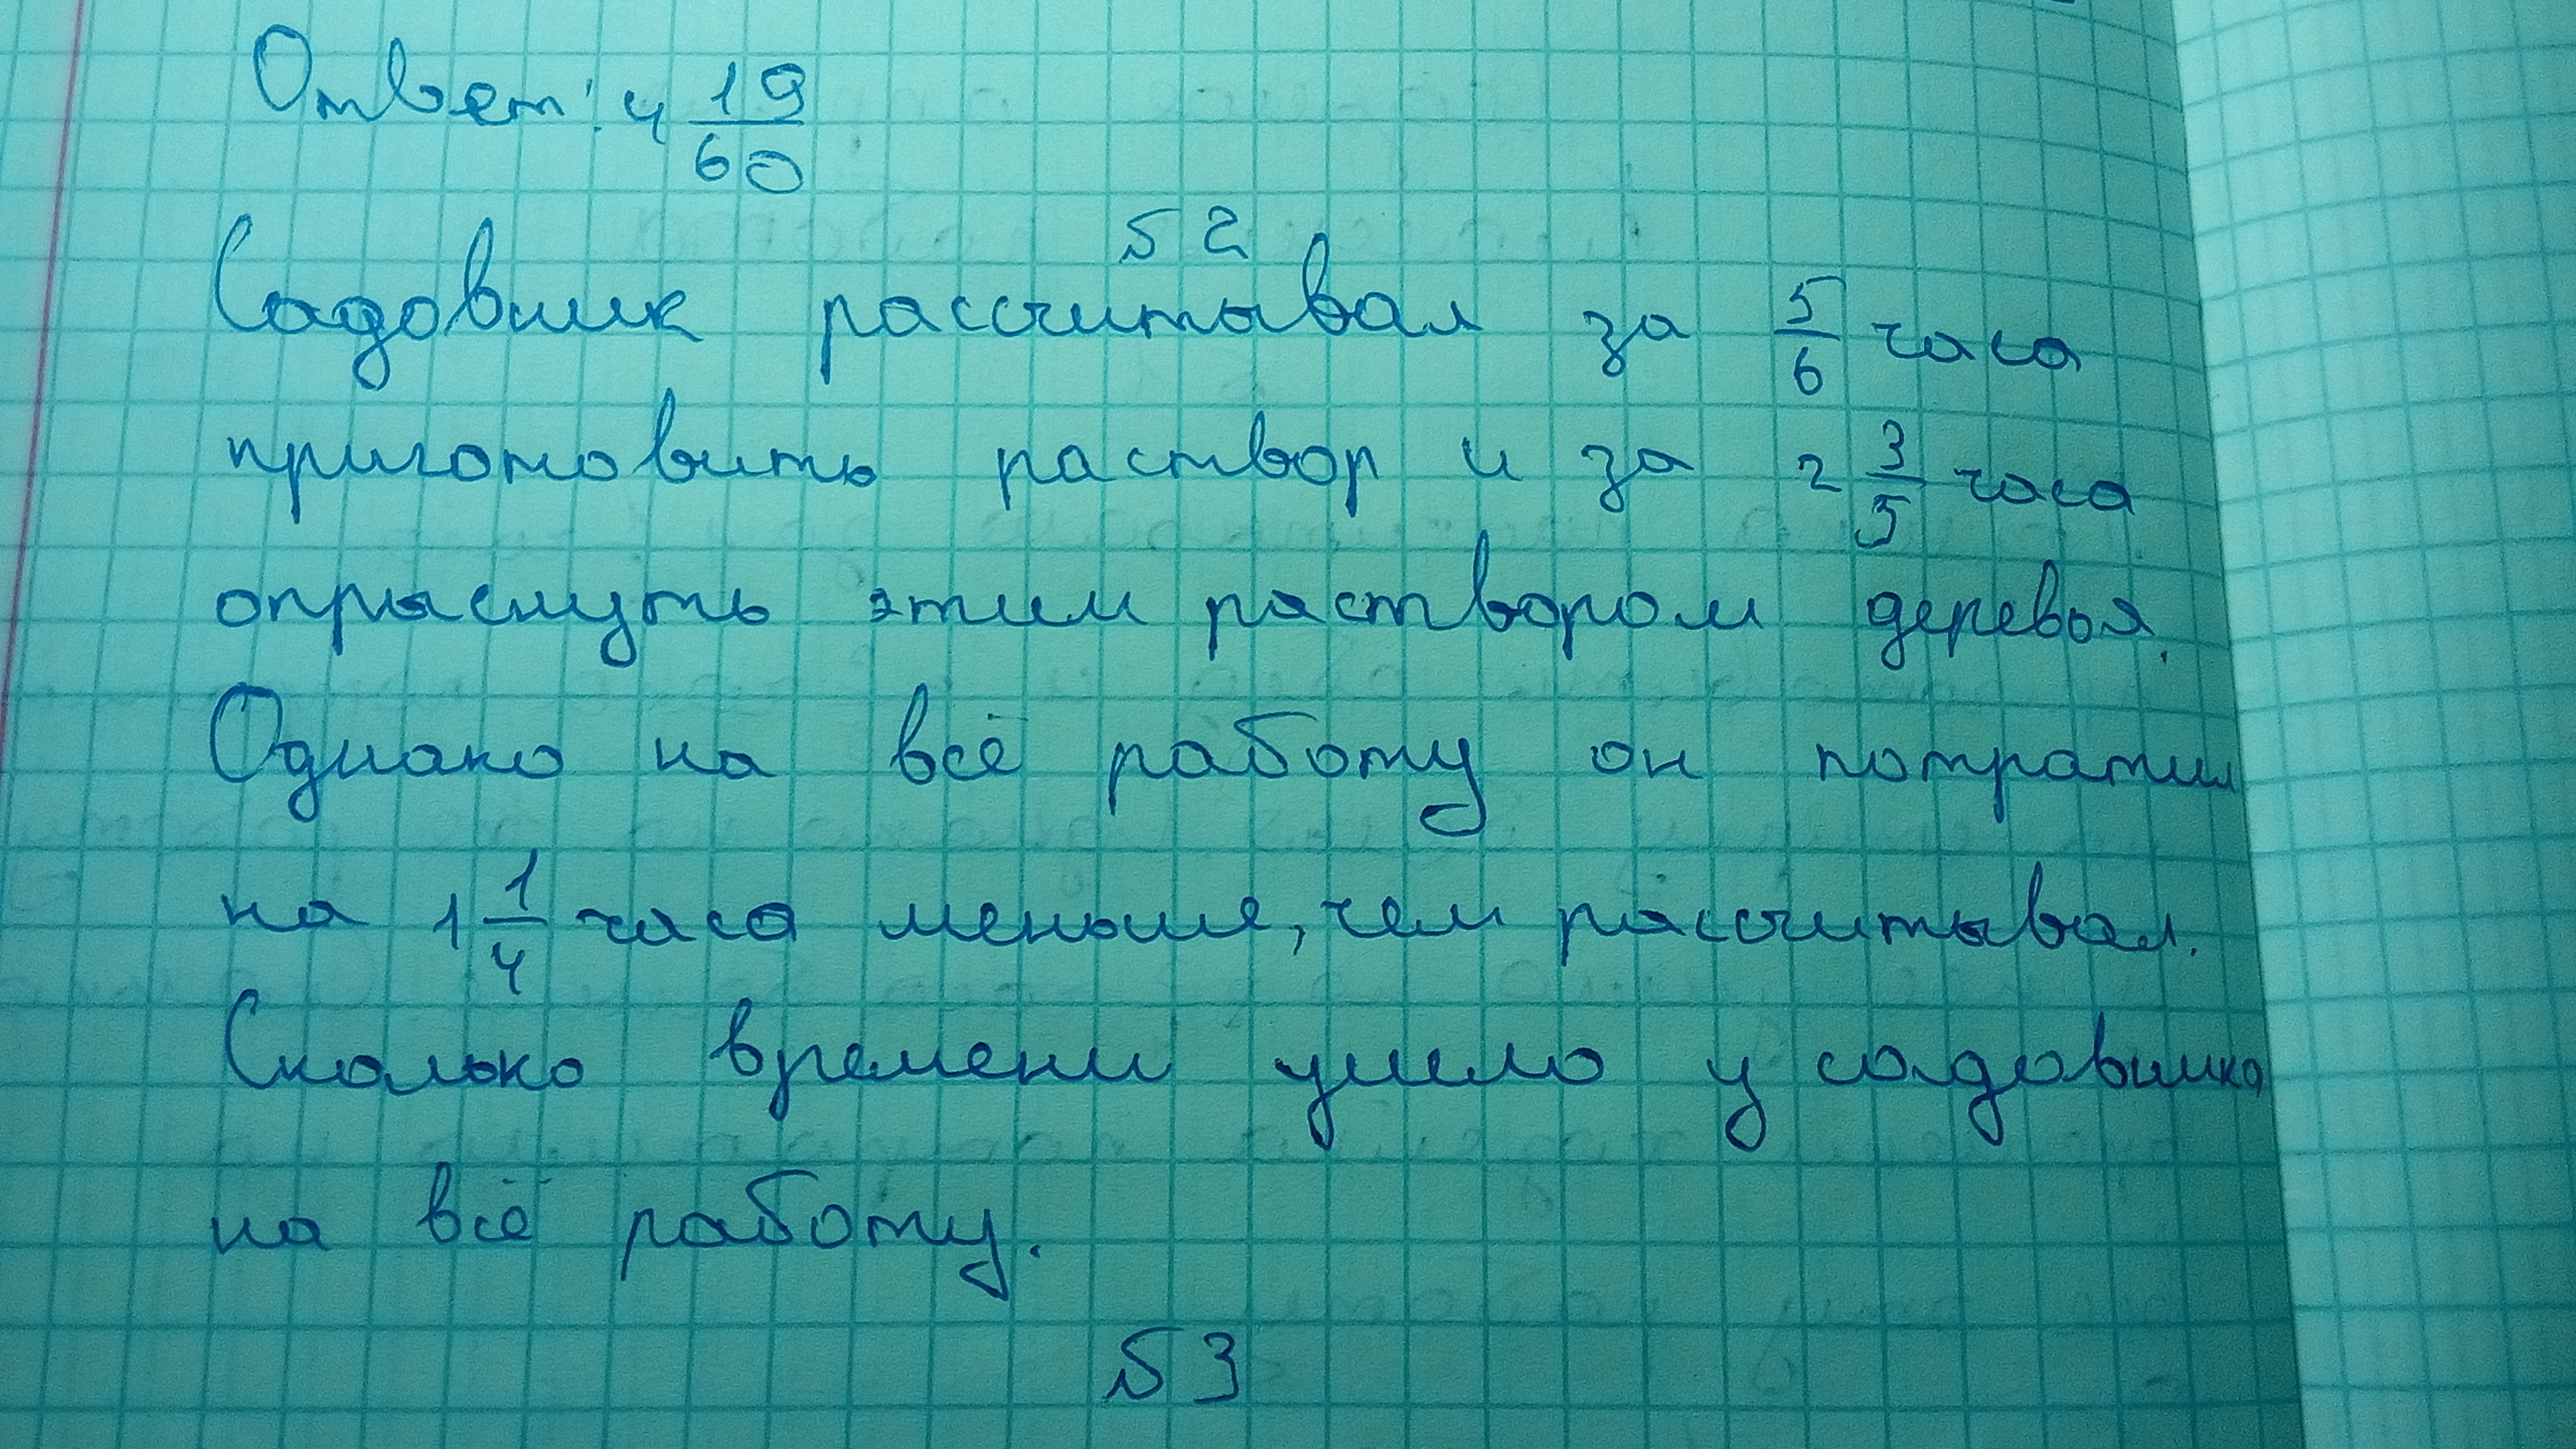 Ответ: 4 19/60
№2
Садовник рассчитывал за 5/6 часа
приготовить раствор и за 2 3/5 часа
опрыснуть этим раствором деревья.
Однако на всё работу он потратил
на 1 1/4 часа меньше, чем рассчитывал.
Сколько времени ушло у садовника
на всё работу.
№3